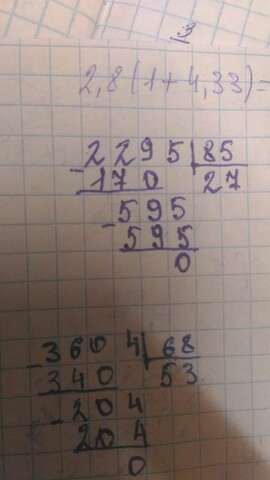 3
2,8(1+4,33)=
2295 85
-170 27
-595
595
0
-3604 68
340 53
-204
204
0